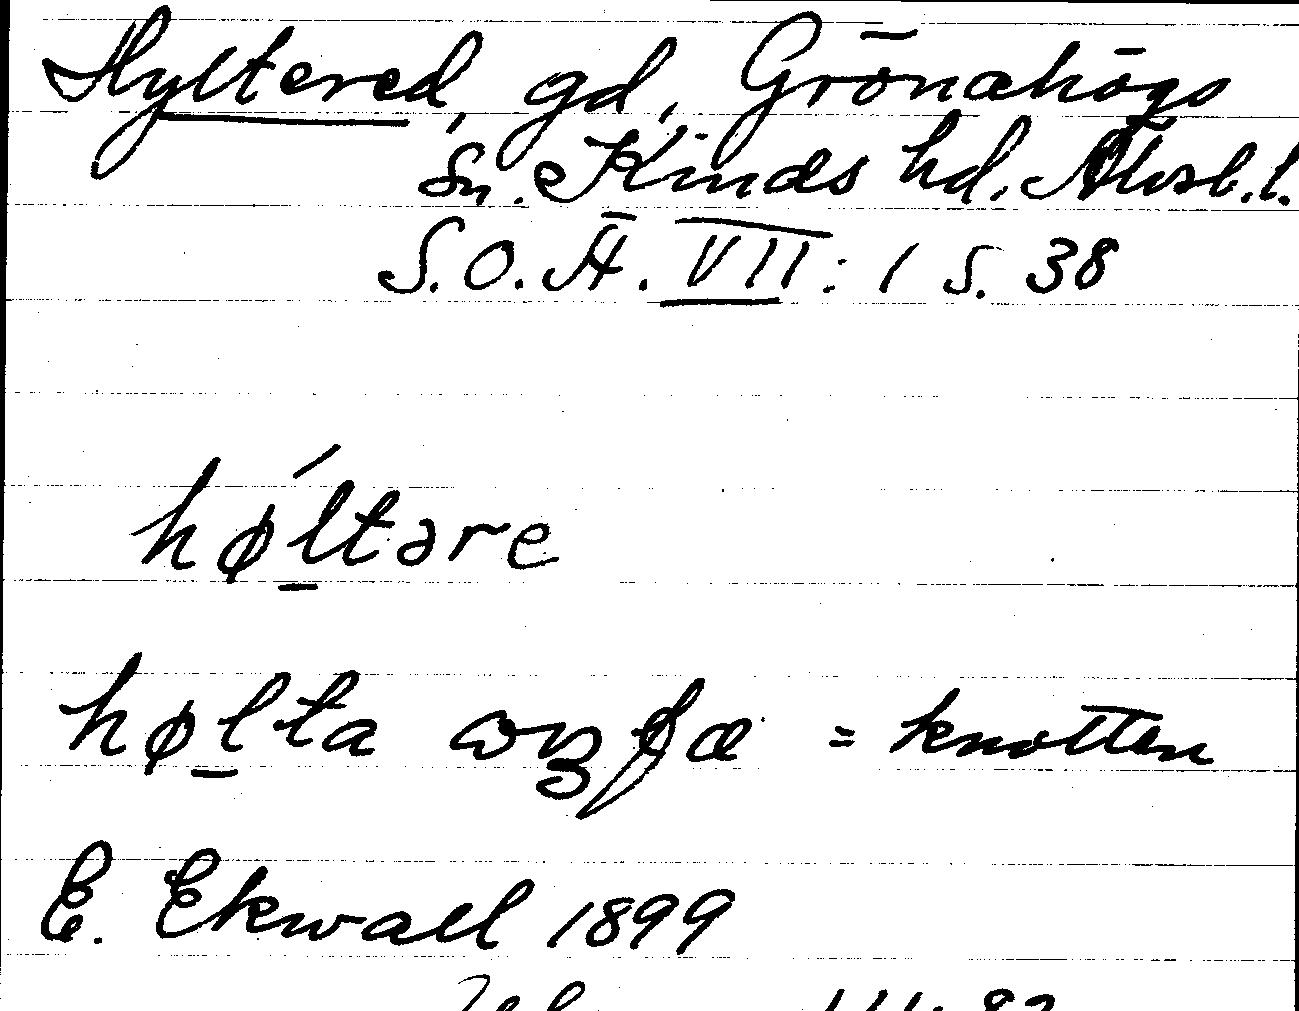 Hyltered, gd, Grönahögs
sn. Kinds hd. Älvsb. l.
S.O.Ä. VII: 1 s. 38
hǿltəre
hølta = knotten
E. Ekwall 1899